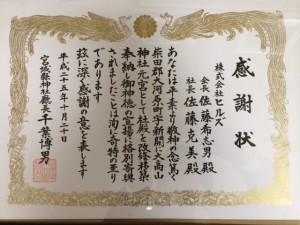 感謝状
株式会社ヒルズ
会長 佐藤希志男殿
社長 佐藤克美殿
あなたは平素より敬神の念篤く
柴田郡大河原町字新開に大高山
神社元宮として社殿を改修移築
奉納し御神徳の宣揚に格別寄与
されましたことは洵に奇特の至り
であります
茲に深く感謝の意を表します
平成二十五年十月二十日
宮城縣神社廳長 千葉博男